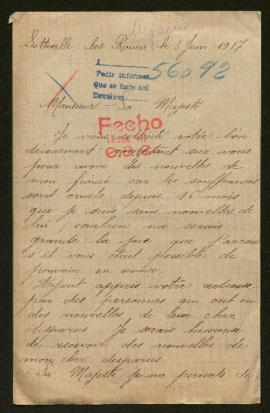 Sotteville les Rouen le 8 Juin 1917
1
Pedir informes
Que se hace así
Devolver
56092
Monsieur Sa Majesté
Fecho
Je viens votre bon
dévouement comptant sur vous
pour avoir des nouvelles de
mon fiancé car les souffrances
sont cruels depuis 16 mois
que je suis sans nouvelles de
lui, combien me serais
grande la joie que j'aurais
s'il vous était possible de
pouvoir en
Ayant appris votre adresse
par des personnes qui ont eu
des nouvelles de leur cher
disparus Je serais heureuse
de recevoir des nouvelles de
mon cher disparus
Sa Majesté je me permets de